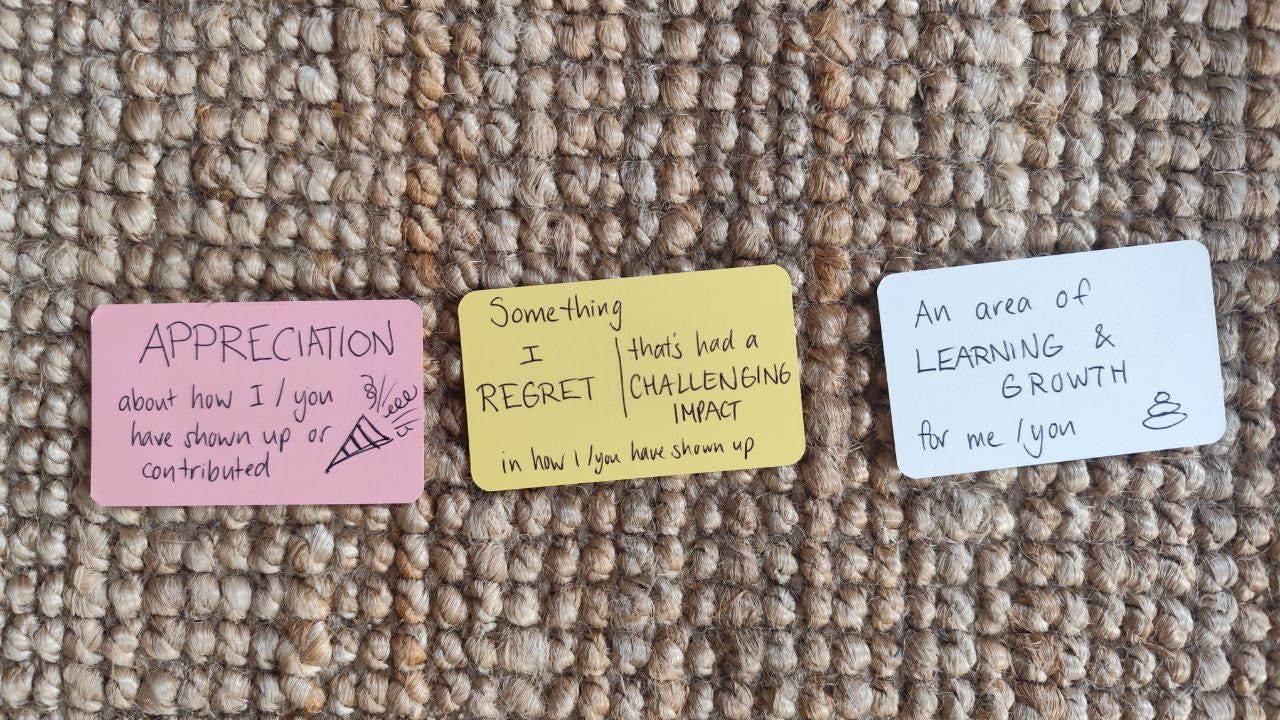 APPRECIATION
about how I / you
have shown up or
contributed
Something
I
REGRET
that's had a
CHALLENGING
IMPACT
in how I / you have shown up
An area of
LEARNING &
GROWTH
for me / you